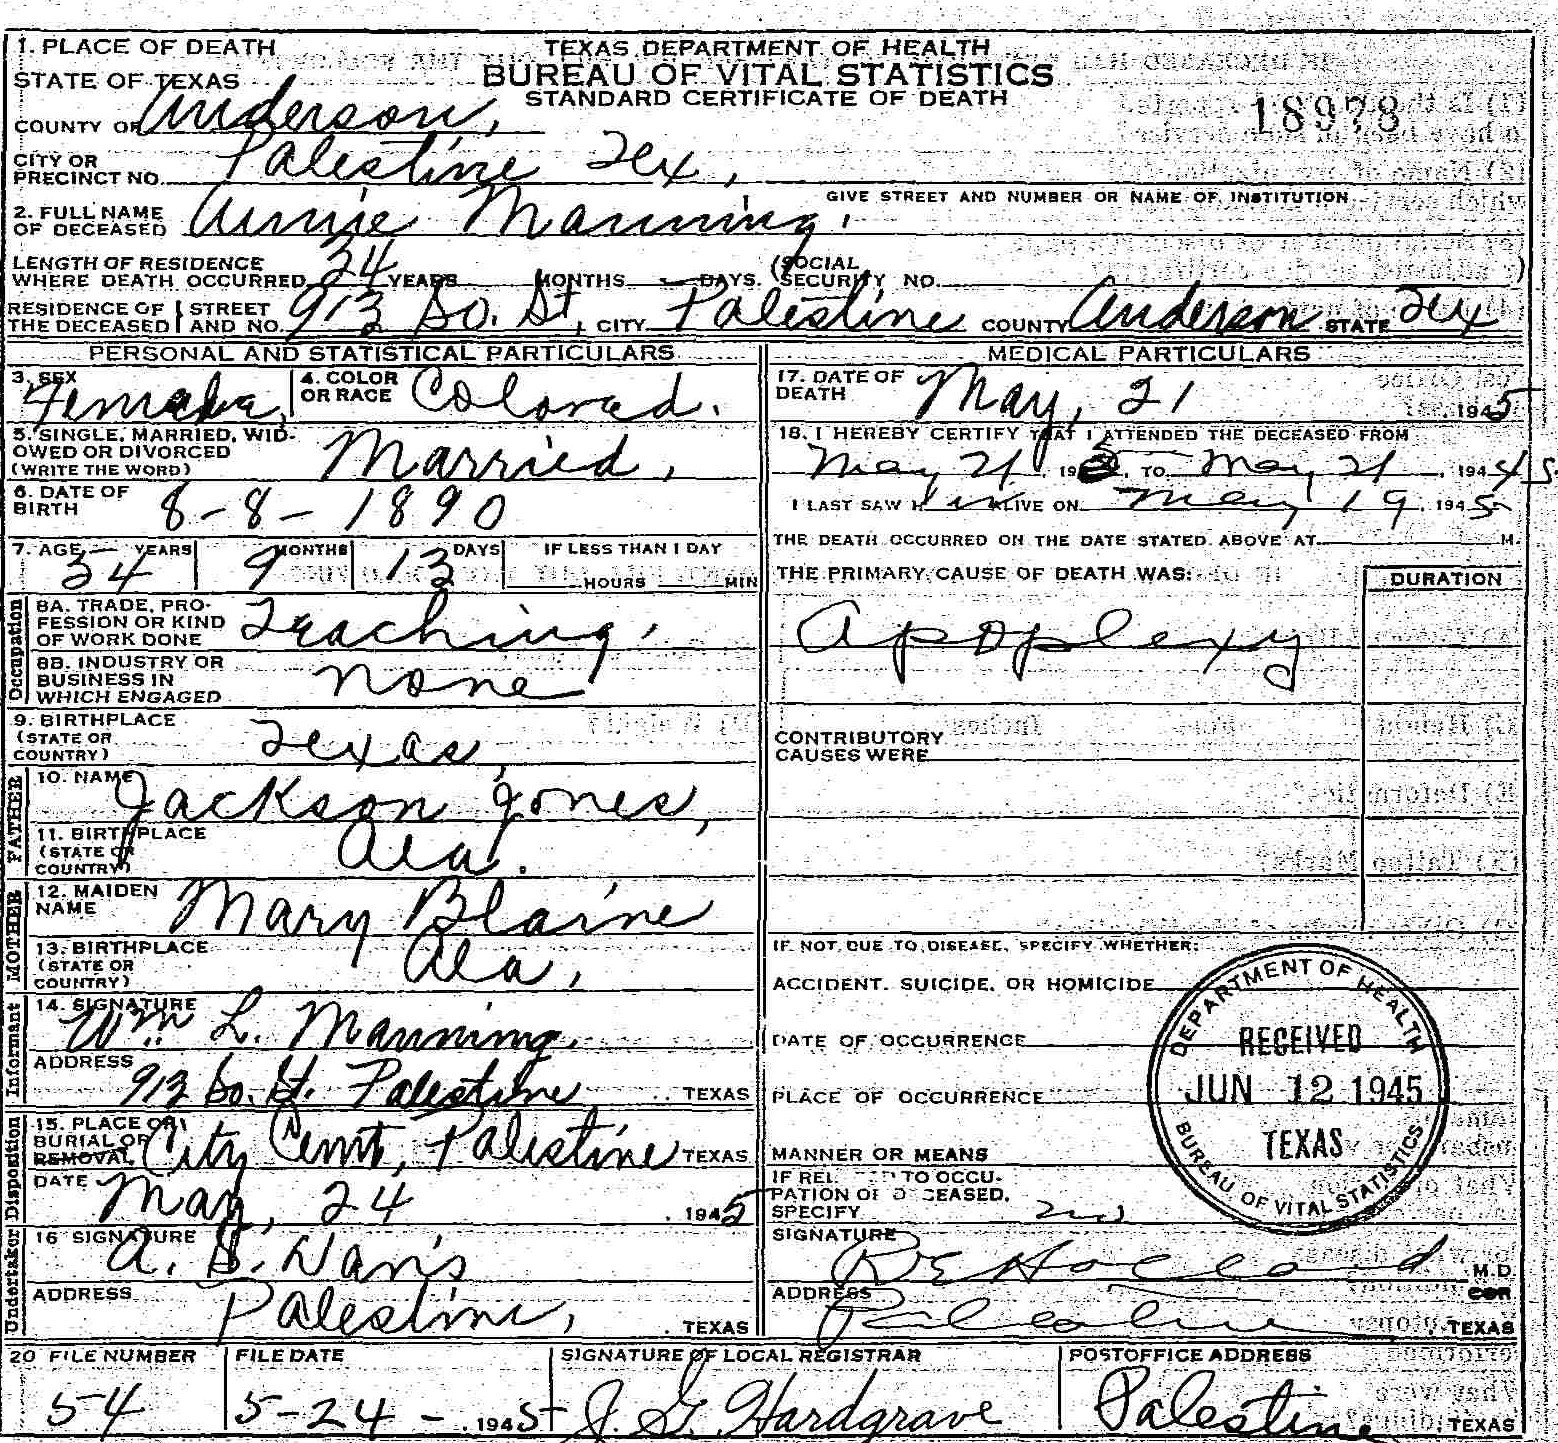 1. PLACE OF DEATH
STATE OF TEXAS
COUNTY OF Anderson,
TEXAS DEPARTMENT OF HEALTH
BUREAU OF VITAL STATISTICS
STANDARD CERTIFICATE OF DEATH
18978
CITY OR
PRECINCT NO. Palestine Tex,
GIVE STREET AND NUMBER OR NAME OF INSTITUTION
2. FULL NAME
OF DECEASED Annie Manning.
LENGTH OF RESIDENCE
WHERE DEATH OCCURRED 34 YEARS MONTHS DAYS. (SOCIAL SECURITY NO. )
RESIDENCE OF THE DECEASED { STREET AND NO. 913 So. St, CITY Palestine COUNTY Anderson STATE Tex
PERSONAL AND STATISTICAL PARTICULARS
3. SEX Female,
4. COLOR OR RACE Colored.
5. SINGLE, MARRIED, WID-
OWED OR DIVORCED
(WRITE THE WORD) Married,
6. DATE OF
BIRTH 8-8-1890
7. AGE 54 YEARS 9 MONTHS 13 DAYS IF LESS THAN 1 DAY
HOURS MIN
Occupation
8A. TRADE, PRO-
FESSION OR KIND
OF WORK DONE Teaching,
8B. INDUSTRY OR
BUSINESS IN
WHICH ENGAGED none
9. BIRTHPLACE
(STATE OR
COUNTRY) Texas,
FATHER
10. NAME Jackson Jones,
11. BIRTHPLACE
(STATE OR
COUNTRY) Ala.
MOTHER
12. MAIDEN
NAME Mary Blaine
13. BIRTHPLACE
(STATE OR
COUNTRY) Ala,
Informant
14. SIGNATURE Wm L. Manning.
ADDRESS 913 So. St. Palestine TEXAS
Disposition
15. PLACE OF
BURIAL OR
REMOVAL City Cemt, Palestine TEXAS
DATE May, 24, 1945
Undertaker
16 SIGNATURE A. S. Davis
ADDRESS Palestine, TEXAS
MEDICAL PARTICULARS
17. DATE OF
DEATH May, 21 1945
18. I HEREBY CERTIFY THAT I ATTENDED THE DECEASED FROM
May 21, TO May 21, 1945
I LAST SAW ALIVE ON May 19, 1945
THE DEATH OCCURRED ON THE DATE STATED ABOVE AT M.
THE PRIMARY CAUSE OF DEATH WAS: DURATION
Apoplexy
CONTRIBUTORY
CAUSES WERE
IF NOT DUE TO DISEASE, SPECIFY WHETHER:
ACCIDENT, SUICIDE, OR HOMICIDE
DATE OF OCCURRENCE
PLACE OF OCCURRENCE
MANNER OR MEANS
DEPARTMENT OF HEALTH
RECEIVED
JUN 12 1945
TEXAS
BUREAU OF VITAL STATISTICS
IF RELATED TO OCCU-
PATION OF DECEASED,
SPECIFY no
SIGNATURE R E Holland M.D
ADDRESS Palestine, TEXAS
20 FILE NUMBER 54
FILE DATE 5-24-, 1945
SIGNATURE OF LOCAL REGISTRAR J. G. Hardgrave
POSTOFFICE ADDRESS Palestine TEXAS